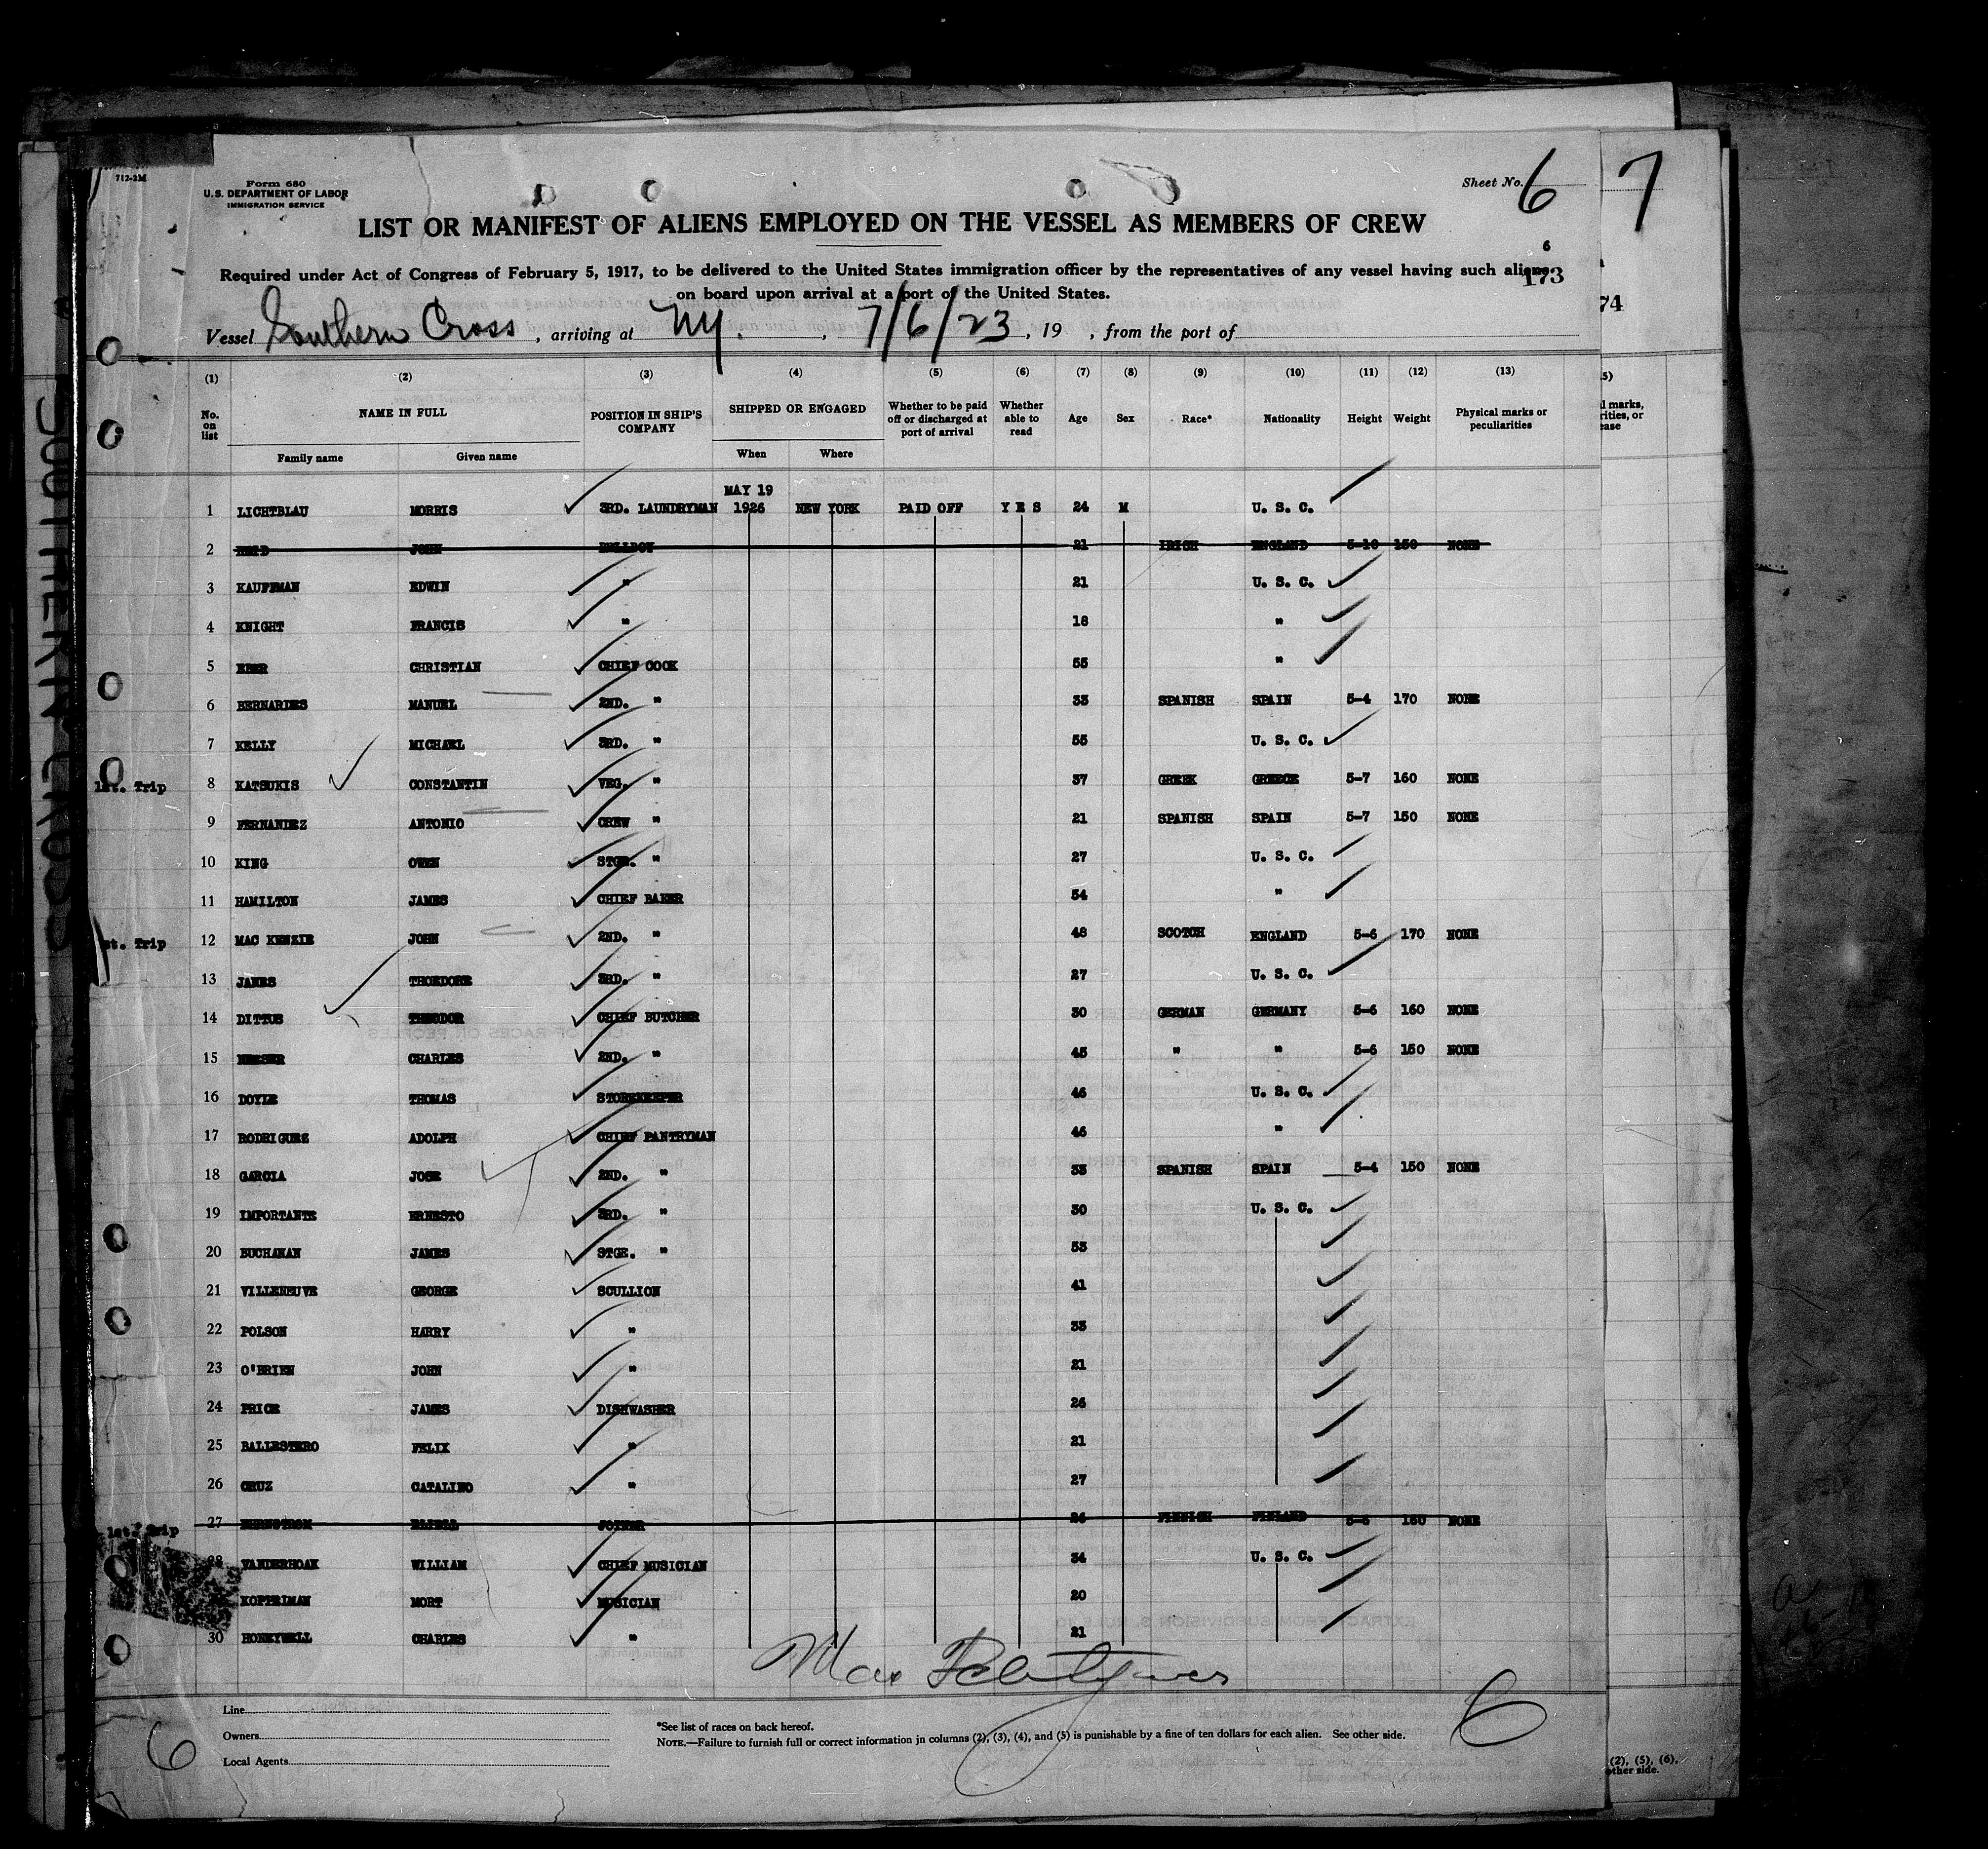 712-2M
Form 680
U.S. DEPARTMENT OF LABOR
IMMIGRATION SERVICE
Sheet No. 6
7
LIST OR MANIFEST OF ALIENS EMPLOYED ON THE VESSEL AS MEMBERS OF CREW
6
Required under Act of Congress of February 5, 1917, to be delivered to the United States immigration officer by the representatives of any vessel having such aliens
173
on board upon arrival at a port of the United States.
74
Vessel Southern Cross, arriving at NY., 7/6/23, 19 , from the port of
(1) (2) (3) (4) (5) (6) (7) (8) (9) (10) (11) (12) (13)
No. on list NAME IN FULL POSITION IN SHIP'S COMPANY SHIPPED OR ENGAGED Whether to be paid off or discharged at port of arrival Whether able to read Age Sex Race* Nationality Height Weight Physical marks or peculiarities
Family name Given name When Where
MAY 19
1 LICHTBLAU MORRIS 3RD. LAUNDRYMAN 1926 NEW YORK PAID OFF YES 24 M U. S. C.
2 JOHN BELLBOY 21 IRISH ENGLAND 5-10 150 NONE
3 KAUFFMAN EDWIN " 21 U. S. C.
4 KNIGHT FRANCIS " 18 "
5 EBER CHRISTIAN CHIEF COOK 55 "
6 BERNARDES MANUEL 2ND. " 33 SPANISH SPAIN 5-4 170 NONE
7 KELLY MICHAEL 3RD. " 55 U. S. C.
1st. Trip 8 KATSUKIS CONSTANTIN VEG. " 37 GREEK GREECE 5-7 160 NONE
9 FERNANDEZ ANTONIO CREW " 21 SPANISH SPAIN 5-7 150 NONE
10 KING OWEN STGE. " 27 U. S. C.
11 HAMILTON JAMES CHIEF BAKER 54 "
st. Trip 12 MAC KENZIE JOHN 2ND. " 48 SCOTCH ENGLAND 5-6 170 NONE
13 JANES THOEDORE 3RD. " 27 U. S. C.
14 DITTUS THEODOR CHIEF BUTCHER 30 GERMAN GERMANY 5-6 160 NONE
15 CHARLES 2ND. " 45 " " 5-6 150 NONE
16 DOYLE THOMAS STOREKEEPER 46 U. S. C.
17 RODRIGUEZ ADOLPH CHIEF PANTRYMAN 46 "
18 GARCIA JOSE 2ND. " 33 SPANISH SPAIN 5-4 150 NONE
19 IMPORTANTE ERNESTO 3RD. " 30 U. S. C.
20 BUCHANAN JAMES STGE. " 53
21 VILLENEUVE GEORGE SCULLION 41
22 POLSON HARRY " 33
23 O'BRIEN JOHN " 21
24 PRICE JAMES DISHWASHER 26
25 BALLESTERO FELIX " 21
26 CRUZ CATALINO " 27
1st. Trip 27 JOINER 26 FINNISH FINLAND 5-6 160 NONE
28 VANDERHOAK WILLIAM CHIEF MUSICIAN 34 U. S. C.
KOPPELMAN MORT MUSICIAN 20
30 HONEYWELL CHARLES " 21
Max
6
Line
Owners
Local Agents
*See list of races on back hereof.
NOTE.—Failure to furnish full or correct information in columns (2), (3), (4), and (5) is punishable by a fine of ten dollars for each alien. See other side.
6
(2), (5), (6).
other side.
SOUTHERN CROSS